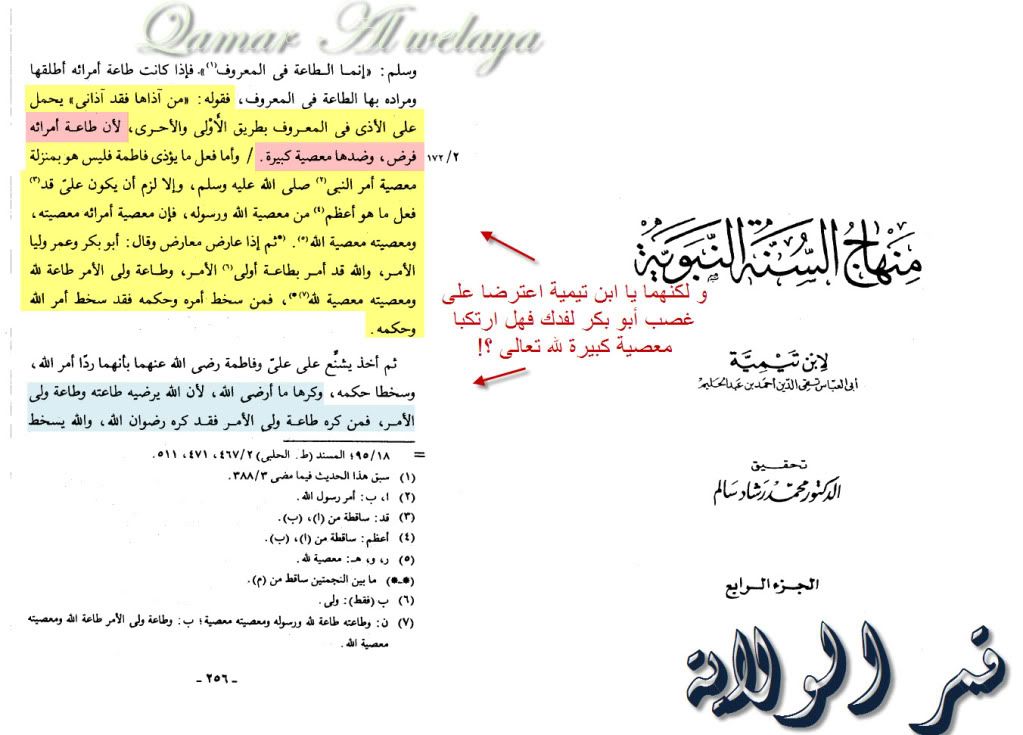 Qamar Al welaya
وسلم: «إنما الطاعة فى المعروف(١)». فإذا كانت طاعة أمرائه أطلقها
ومراده بها الطاعة فى المعروف، فقوله: «من آذاها فقد آذانى» يحمل
على الأذى فى المعروف بطريق الأَوْلى والأحرى، لأن طاعة أمرائه
فرض، وضدها معصية كبيرة. / وأما فعل ما يؤذى فاطمة فليس هو بمنزلة
٢/ ١٧٢
معصية أمر النبى(٢) صلى الله عليه وسلم، وإلا لزم أن يكون علىّ قد(٣)
فعل ما هو أعظم(٤) من معصية الله ورسوله، فإن معصية أمرائه معصيته،
ومعصيته معصية الله(٥). (*ثم إذا عارض معارض وقال: أبو بكر وعمر وليا
الأمر، والله قد أمر بطاعة أولى(٦) الأمر، وطاعة ولى الأمر طاعة لله
ومعصيته معصية لله(٧)*)، فمن سخط أمره وحكمه فقد سخط أمر الله
وحكمه.
ثم أخذ يشنِّع على علىّ وفاطمة رضى الله عنهما بأنهما ردّا أمر الله،
وسخطا حكمه، وكرها ما أرضى الله، لأن الله يرضيه طاعته وطاعة ولى
الأمر، فمن كره طاعة ولى الأمر فقد كره رضوان الله، والله يسخط
= ٩٥/١٨؛ المسند (ط. الحلبى) ٤٦٧/٢، ٤٧١، ٥١١.
(١) سبق هذا الحديث فيما مضى ٣٨٨/٣.
(٢) ا، ب: أمر رسول الله.
(٣) قد: ساقطة من (ا)، (ب).
(٤) أعظم: ساقطة من (ا)، (ب).
(٥) ر، و، هـ: معصية لله.
(*ـ*) ما بين النجمتين ساقط من (م).
(٦) ب (فقط): ولى.
(٧) ن: وطاعته طاعة لله ورسوله ومعصيته معصية؛ ب: وطاعة ولى الأمر طاعة الله ومعصيته
معصية الله.
- ٢٥٦ -
و لكنهما يا ابن تيمية اعترضا على
غصب أبو بكر لفدك فهل ارتكبا
معصية كبيرة لله تعالى ؟!
منهاج السنة النبوية
لابن تيمية
أبي العباس تقي الدين أحمد بن عبد الحليم
تحقيق
الدكتور محمد رشاد سالم
الجزء الرابع
قمر الولاية